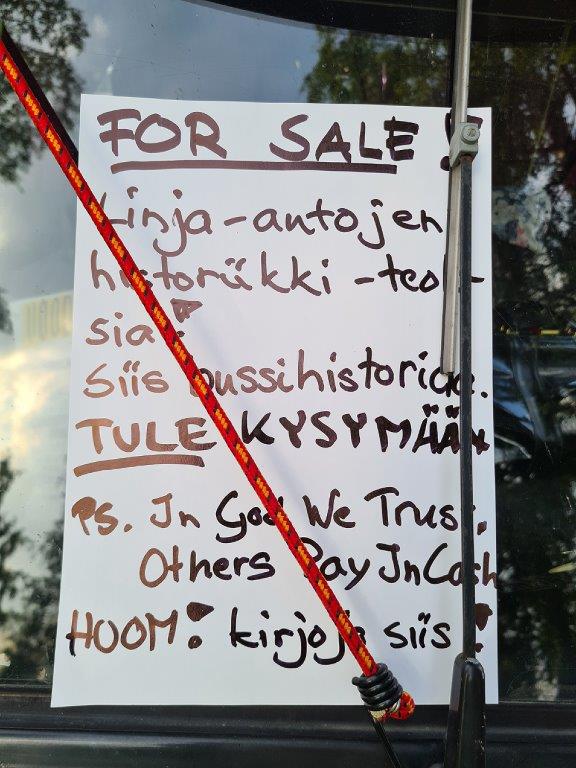 FOR SALE!
Linja-autojen
historiikki -teok-
sia!
Siis bussihistoriaa.
TULE KYSYMÄÄN
Ps. In God We Trust.
Others Pay In Cash
HUOM! kirjoja siis!